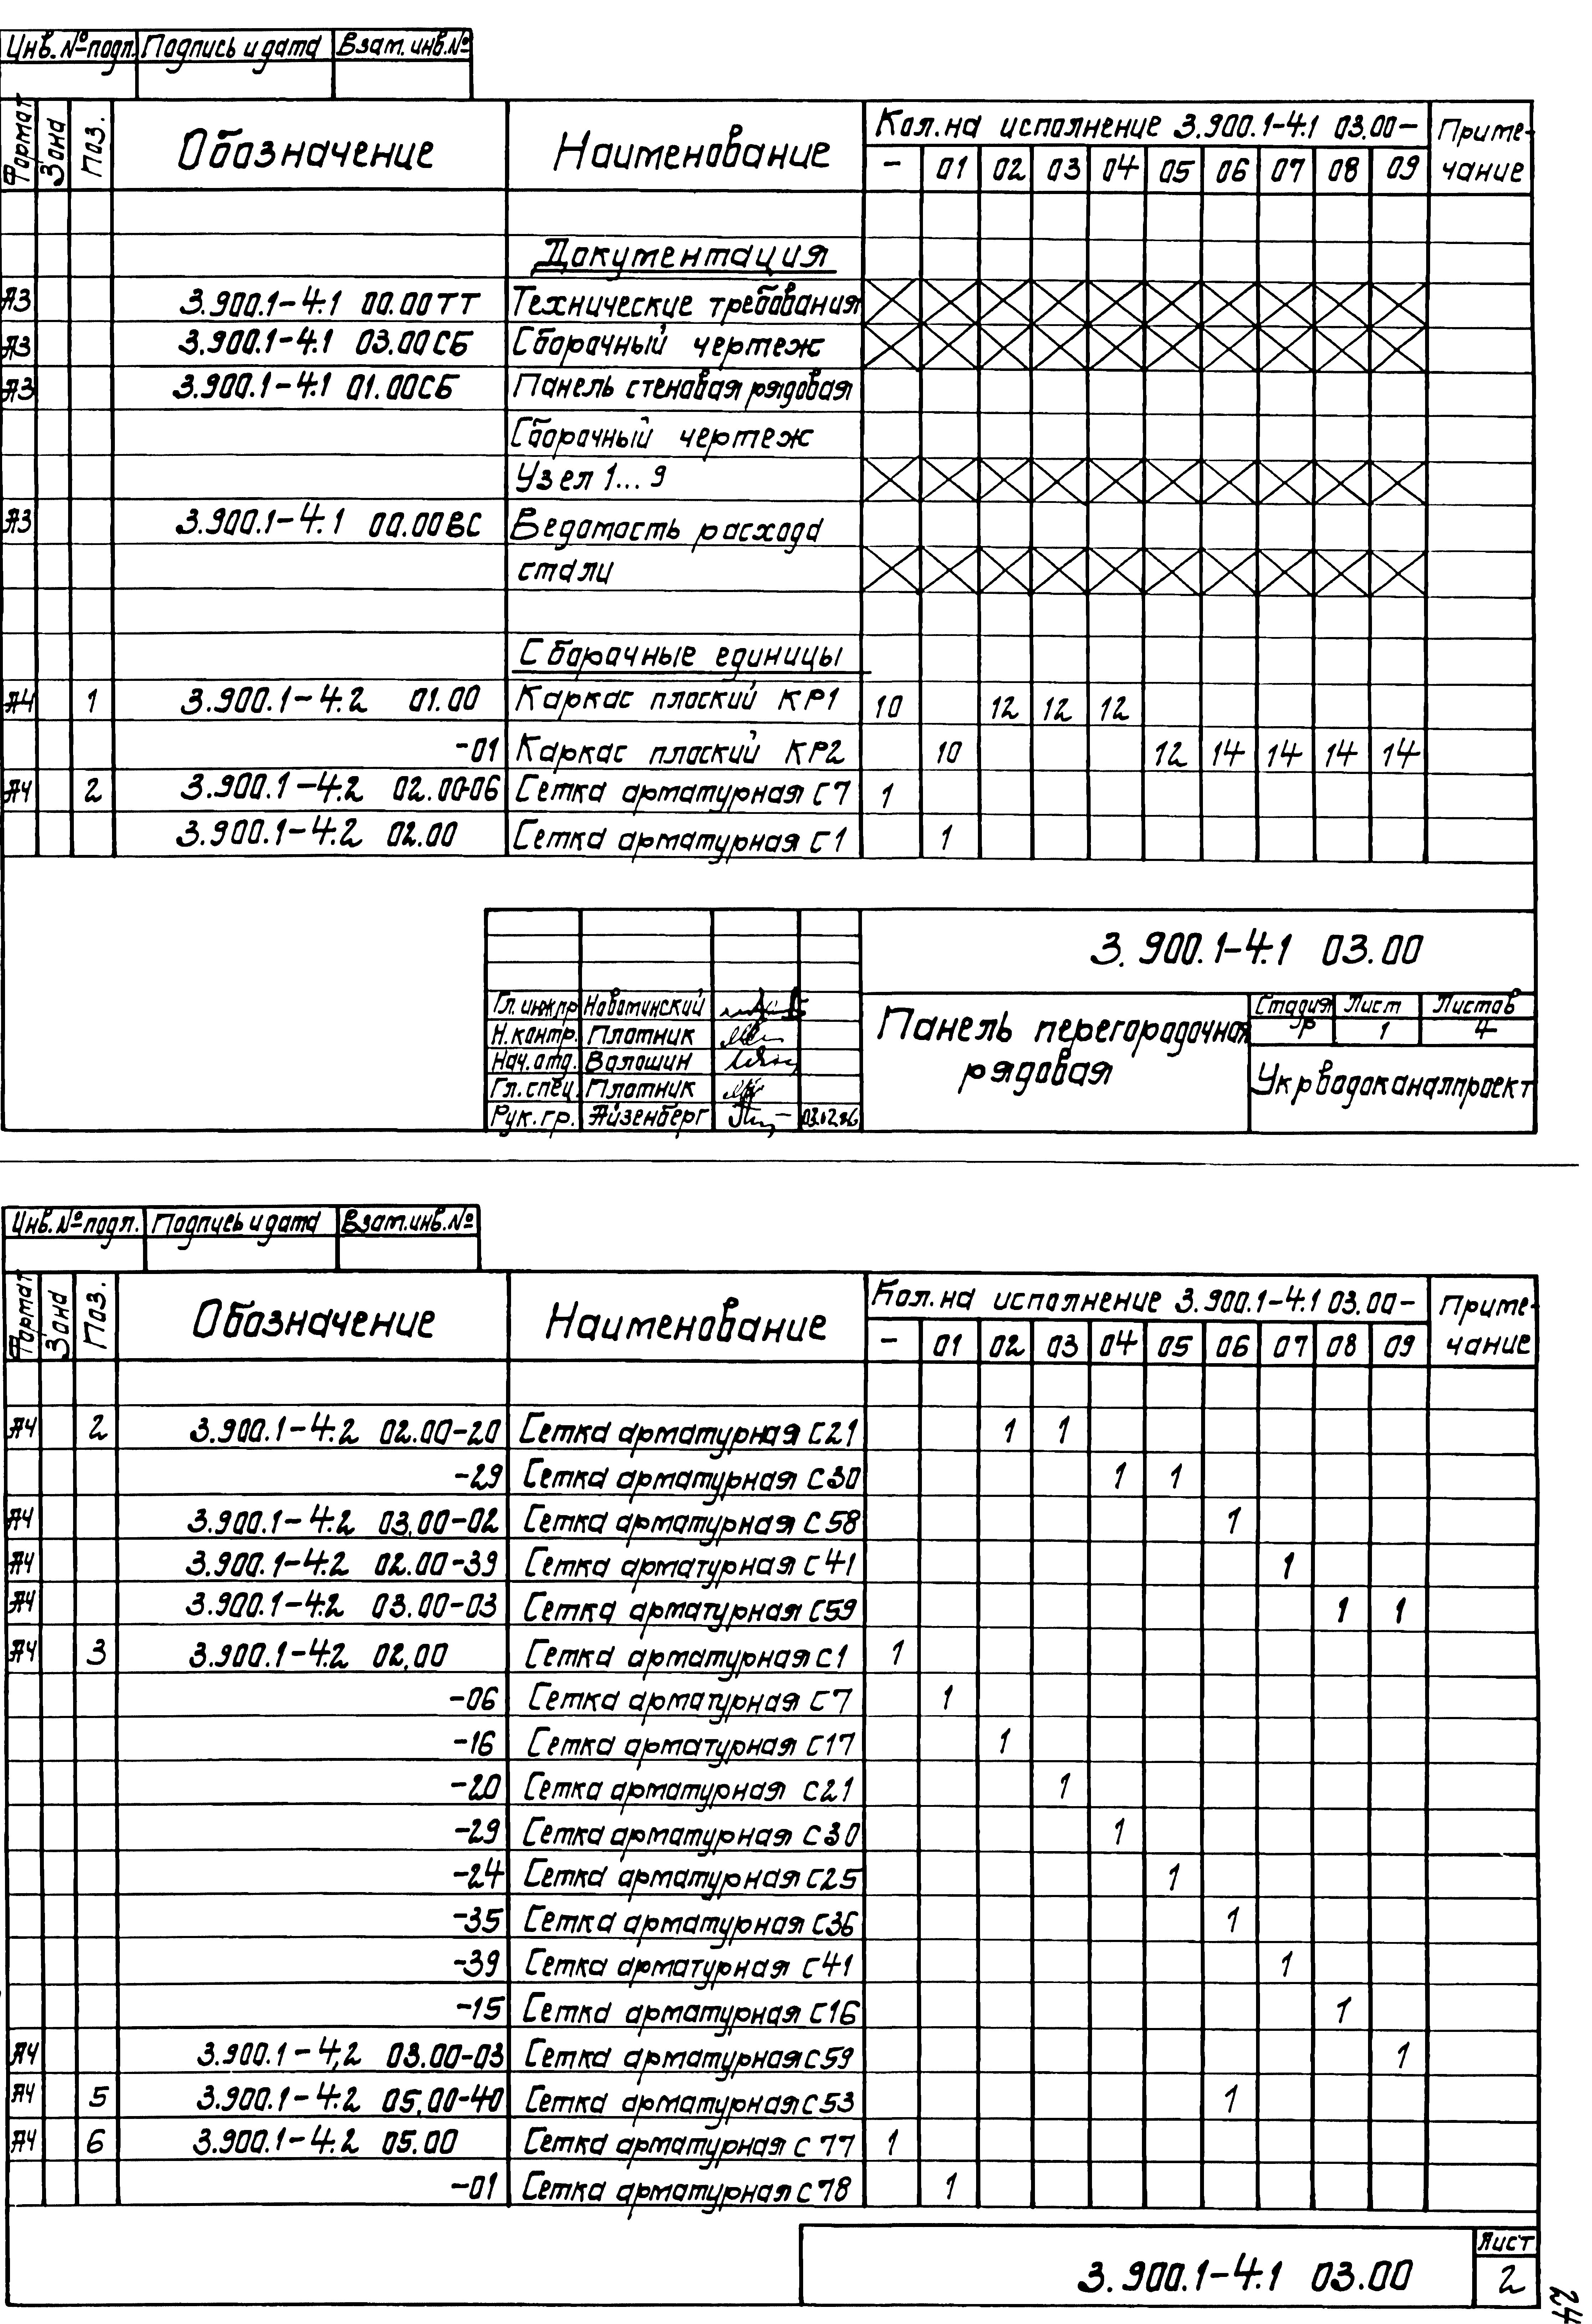 Инв. № подл. Подпись и дата Взам. инв. №
Формат Зона Поз. Обозначение Наименование Кол. на исполнение 3.900.1-4.1 03.00- Приме-
- 01 02 03 04 05 06 07 08 09 чание
Документация
А3 3.900.1-4.1 00.00ТТ Технические требования
А3 3.900.1-4.1 03.00СБ Сборочный чертеж
А3 3.900.1-4.1 01.00СБ Панель стеновая рядовая
Сборочный чертеж
Узел 1...9
А3 3.900.1-4.1 00.00ВС Ведомость расхода
стали
Сборочные единицы
А4 1 3.900.1-4.2 01.00 Каркас плоский КР1 10 12 12 12
-01 Каркас плоский КР2 10 12 14 14 14 14
А4 2 3.900.1-4.2 02.00-06 Сетка арматурная С7 1
3.900.1-4.2 02.00 Сетка арматурная С1 1
3.900.1-4.1 03.00
Гл. инж.пр Новоминский
Н. контр. Плотник
Нач. отд. Волошин
Гл. спец. Плотник
Рук. гр. Айзенберг 03.02.86
Панель перегородочная
рядовая
Стадия Лист Листов
Р 1 4
Укрводоканалпроект
Инв. № подл. Подпись и дата Взам. инв. №
Формат Зона Поз. Обозначение Наименование Кол. на исполнение 3.900.1-4.1 03.00- Приме-
- 01 02 03 04 05 06 07 08 09 чание
А4 2 3.900.1-4.2 02.00-20 Сетка арматурная С21 1 1
-29 Сетка арматурная С30 1 1
А4 3.900.1-4.2 03.00-02 Сетка арматурная С58 1
А4 3.900.1-4.2 02.00-39 Сетка арматурная С41 1
А4 3.900.1-4.2 03.00-03 Сетка арматурная С59 1 1
А4 3 3.900.1-4.2 02.00 Сетка арматурная С1 1
-06 Сетка арматурная С7 1
-16 Сетка арматурная С17 1
-20 Сетка арматурная С21 1
-29 Сетка арматурная С30 1
-24 Сетка арматурная С25 1
-35 Сетка арматурная С36 1
-39 Сетка арматурная С41 1
-15 Сетка арматурная С16 1
А4 3.900.1-4,2 03.00-03 Сетка арматурная С59 1
А4 5 3.900.1-4.2 05.00-40 Сетка арматурная С53 1
А4 6 3.900.1-4.2 05.00 Сетка арматурная С77 1
-01 Сетка арматурная С78 1
3.900.1-4.1 03.00
Лист
2
24